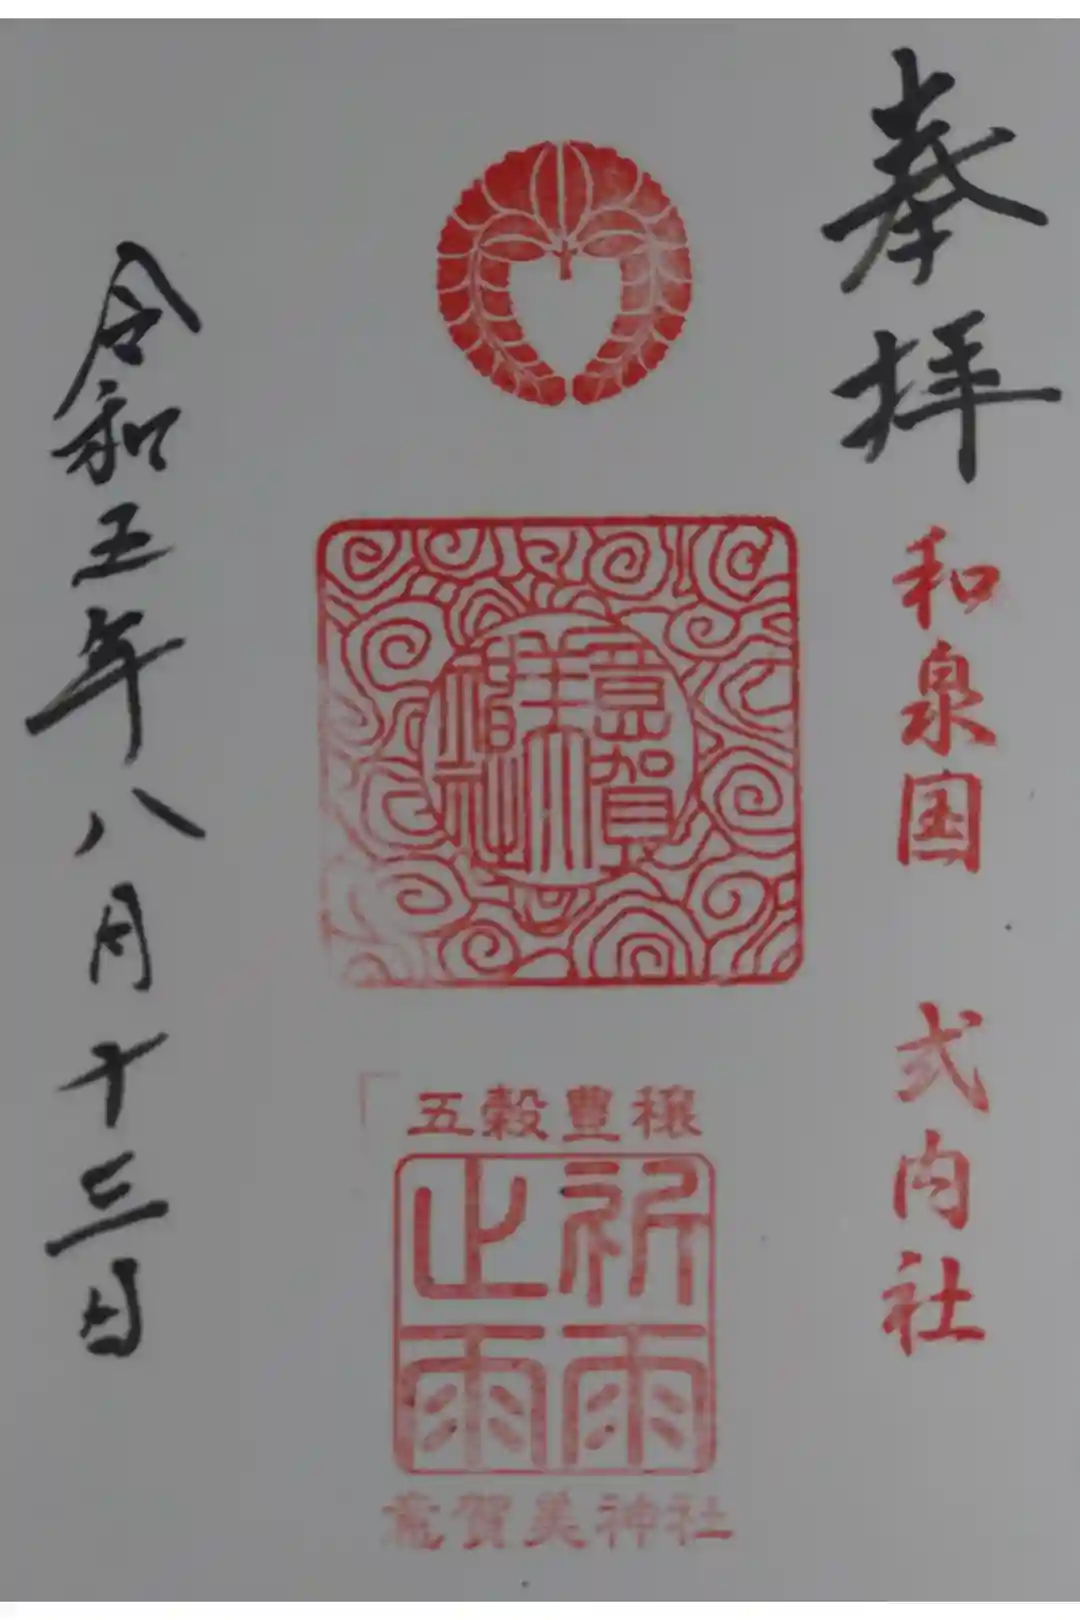 奉拝
和泉国 式内社
意賀
美神社
五穀豊穣
祈雨
止雨
意賀美神社
令和五年八月十三日